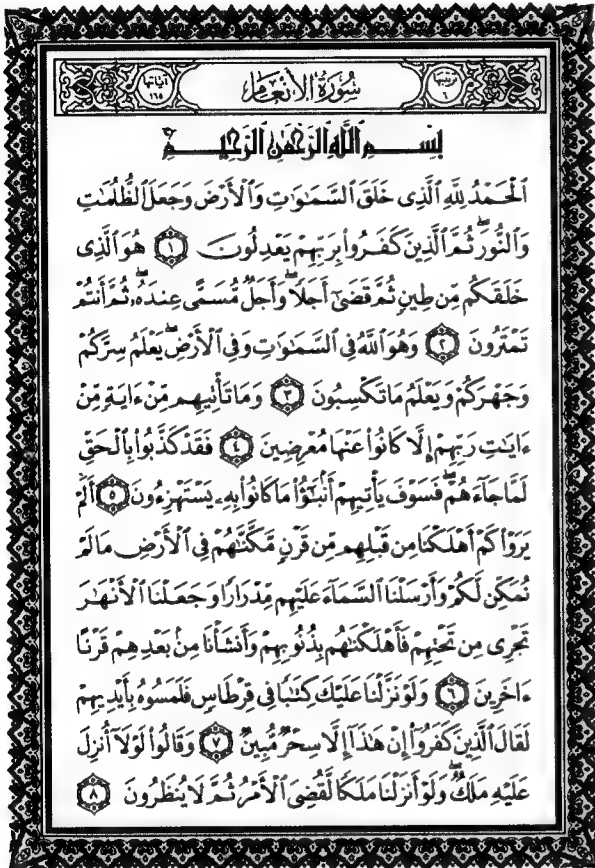 ترتيبها ٦ سُورَةُ الأَنعَامِ آياتها ١٦٥
بِسْمِ ٱللَّهِ ٱلرَّحْمَٰنِ ٱلرَّحِيمِ
ٱلْحَمْدُ لِلَّهِ ٱلَّذِى خَلَقَ ٱلسَّمَٰوَٰتِ وَٱلْأَرْضَ وَجَعَلَ ٱلظُّلُمَٰتِ
وَٱلنُّورَۖ ثُمَّ ٱلَّذِينَ كَفَرُوا۟ بِرَبِّهِمْ يَعْدِلُونَ ١ هُوَ ٱلَّذِى
خَلَقَكُم مِّن طِينٍ ثُمَّ قَضَىٰٓ أَجَلًاۖ وَأَجَلٌ مُّسَمًّى عِندَهُۥۖ ثُمَّ أَنتُمْ
تَمْتَرُونَ ٢ وَهُوَ ٱللَّهُ فِى ٱلسَّمَٰوَٰتِ وَفِى ٱلْأَرْضِۖ يَعْلَمُ سِرَّكُمْ
وَجَهْرَكُمْ وَيَعْلَمُ مَا تَكْسِبُونَ ٣ وَمَا تَأْتِيهِم مِّنْ ءَايَةٍ مِّنْ
ءَايَٰتِ رَبِّهِمْ إِلَّا كَانُوا۟ عَنْهَا مُعْرِضِينَ ٤ فَقَدْ كَذَّبُوا۟ بِٱلْحَقِّ
لَمَّا جَآءَهُمْۖ فَسَوْفَ يَأْتِيهِمْ أَنۢبَٰٓؤُا۟ مَا كَانُوا۟ بِهِۦ يَسْتَهْزِءُونَ ٥ أَلَمْ
يَرَوْا۟ كَمْ أَهْلَكْنَا مِن قَبْلِهِم مِّن قَرْنٍ مَّكَّنَّٰهُمْ فِى ٱلْأَرْضِ مَا لَمْ
نُمَكِّن لَّكُمْ وَأَرْسَلْنَا ٱلسَّمَآءَ عَلَيْهِم مِّدْرَارًا وَجَعَلْنَا ٱلْأَنْهَٰرَ
تَجْرِى مِن تَحْتِهِمْ فَأَهْلَكْنَٰهُم بِذُنُوبِهِمْ وَأَنشَأْنَا مِنۢ بَعْدِهِمْ قَرْنًا
ءَاخَرِينَ ٦ وَلَوْ نَزَّلْنَا عَلَيْكَ كِتَٰبًا فِى قِرْطَاسٍ فَلَمَسُوهُ بِأَيْدِيهِمْ
لَقَالَ ٱلَّذِينَ كَفَرُوٓا۟ إِنْ هَٰذَآ إِلَّا سِحْرٌ مُّبِينٌ ٧ وَقَالُوا۟ لَوْلَآ أُنزِلَ
عَلَيْهِ مَلَكٌۖ وَلَوْ أَنزَلْنَا مَلَكًا لَّقُضِىَ ٱلْأَمْرُ ثُمَّ لَا يُنظَرُونَ ٨